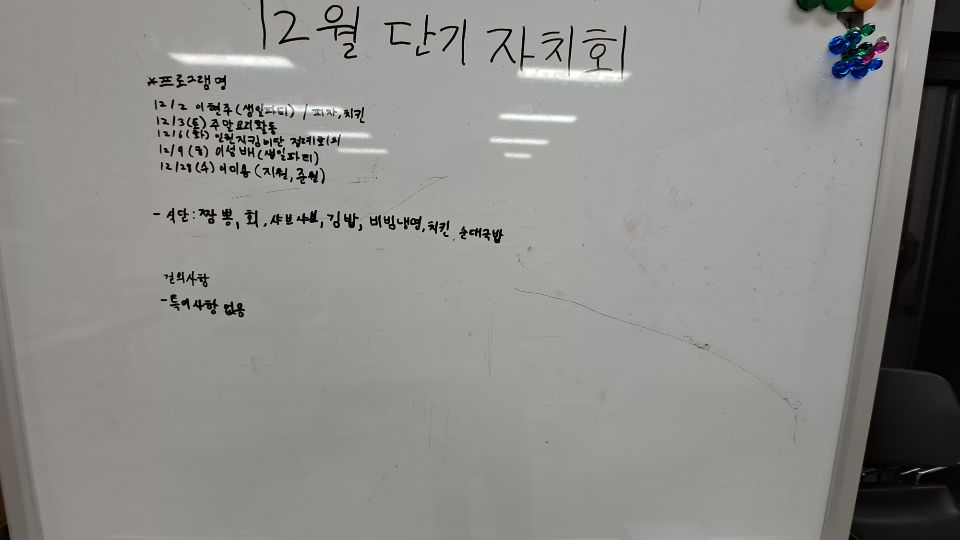 12월 단기 자치회
*프로그램명
12/2 이현주(생일파티) / 피자,치킨
12/3(토) 주말요리활동
12/6(화) 인권지킴이단 정례회의
12/9(금) 이성배(생일파티)
12/28(수) 이미용 (지원,준원)
- 식단:짬뽕, 회, 샤브샤브, 김밥, 비빔냉면,치킨, 순대국밥
건의사항
- 특이사항 없음